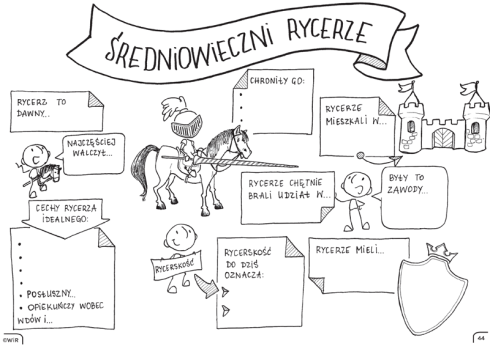 ŚREDNIOWIECZNI RYCERZE
RYCERZ TO
DAWNY...
CHRONIŁY GO:
RYCERZE
MIESZKALI W...
NAJCZĘŚCIEJ
WALCZYŁ...
RYCERZE CHĘTNIE
BRALI UDZIAŁ W...
BYŁY TO
ZAWODY...
CECHY RYCERZA
IDEALNEGO:
• POSŁUSZNY...
• OPIEKUŃCZY WOBEC
WDÓW I...
RYCERSKOŚĆ
RYCERSKOŚĆ
DO DZIŚ
OZNACZA:
RYCERZE MIELI...
©WIR
44